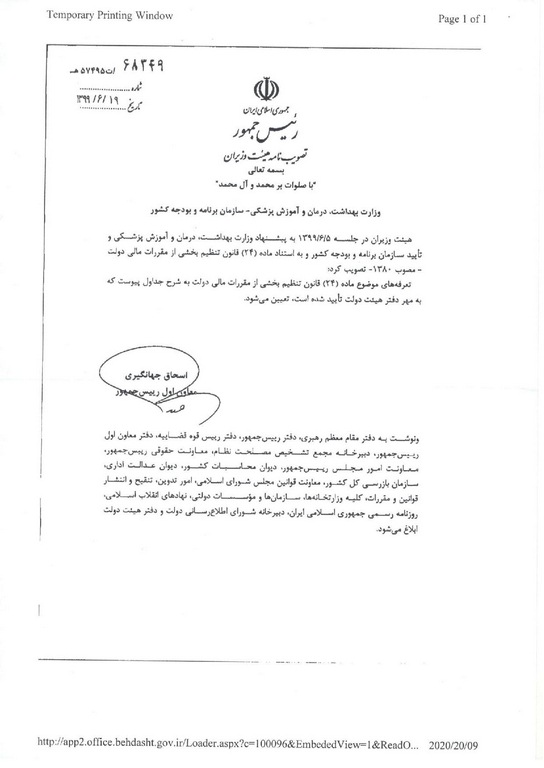 Temporary Printing Window
Page 1 of 1
۶۸۳۴۹ /ت۵۷۴۹۵هـ
شماره
تاریخ ۱۳۹۹/۶/۱۹
جمهوری اسلامی ایران
رئیس جمهور
تصویب نامه هیئت وزیران
بسمه تعالی
"با صلوات بر محمد و آل محمد"
وزارت بهداشت، درمان و آموزش پزشکی- سازمان برنامه و بودجه کشور
هیئت وزیران در جلسه ۱۳۹۹/۶/۵ به پیشنهاد وزارت بهداشت، درمان و آموزش پزشکی و
تأیید سازمان برنامه و بودجه کشور و به استناد ماده (۲۴) قانون تنظیم بخشی از مقررات مالی دولت
- مصوب ۱۳۸۰- تصویب کرد:
تعرفه‌های موضوع ماده (۲۴) قانون تنظیم بخشی از مقررات مالی دولت به شرح جداول پیوست که
به مهر دفتر هیئت دولت تأیید شده است، تعیین می‌شود.
اسحاق جهانگیری
معاون اول رییس‌جمهور
رونوشت به دفتر مقام معظم رهبری، دفتر رییس‌جمهور، دفتر رییس قوه قضاییه، دفتر معاون اول
رییس‌جمهور، دبیرخانه مجمع تشخیص مصلحت نظام، معاونت حقوقی رییس‌جمهور،
معاونت امور مجلس رییس‌جمهور، دیوان محاسبات کشور، دیوان عدالت اداری،
سازمان بازرسی کل کشور، معاونت قوانین مجلس شورای اسلامی، امور تدوین، تنقیح و انتشار
قوانین و مقررات، کلیه وزارتخانه‌ها، سازمان‌ها و مؤسسات دولتی، نهادهای انقلاب اسلامی،
روزنامه رسمی جمهوری اسلامی ایران، دبیرخانه شورای اطلاع‌رسانی دولت و دفتر هیئت دولت
ابلاغ می‌شود.
http://app2.office.behdasht.gov.ir/Loader.aspx?c=100096&EmbededView=1&ReadO... 2020/20/09